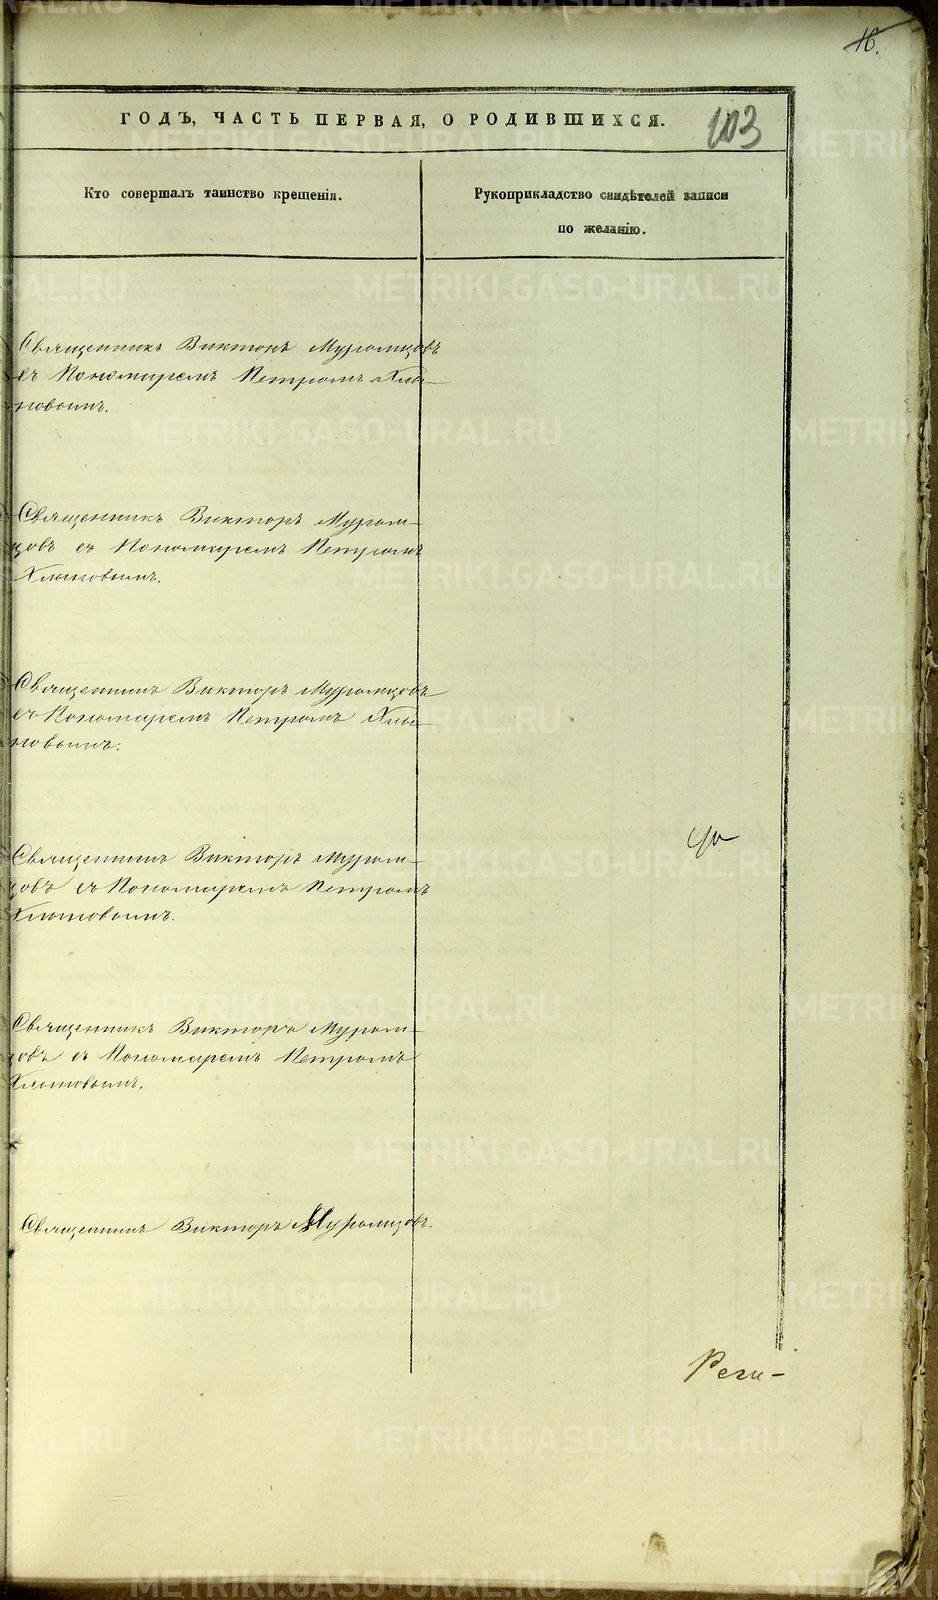 16.
ГОДЪ, ЧАСТЬ ПЕРВАЯ, О РОДИВШИХСЯ.
103
Кто совершалъ таинство крещенія.
Рукоприкладство свидѣтелей записи
по желанію.
Священникъ Викторъ Муромцовъ
съ Пономаремъ Петромъ Хлы-
новымъ.
Священникъ Викторъ Муром-
цовъ съ Пономаремъ Петромъ
Хлыновымъ.
Священникъ Викторъ Муромцовъ
съ Пономаремъ Петромъ Хлы-
новымъ.
Священникъ Викторъ Муром-
цовъ съ Пономаремъ Петромъ
Хлыновымъ.
Священникъ Викторъ Муром-
цовъ съ Пономаремъ Петромъ
Хлыновымъ.
Священникъ Викторъ Муромцовъ.
METRIKI.GASO-URAL.RU